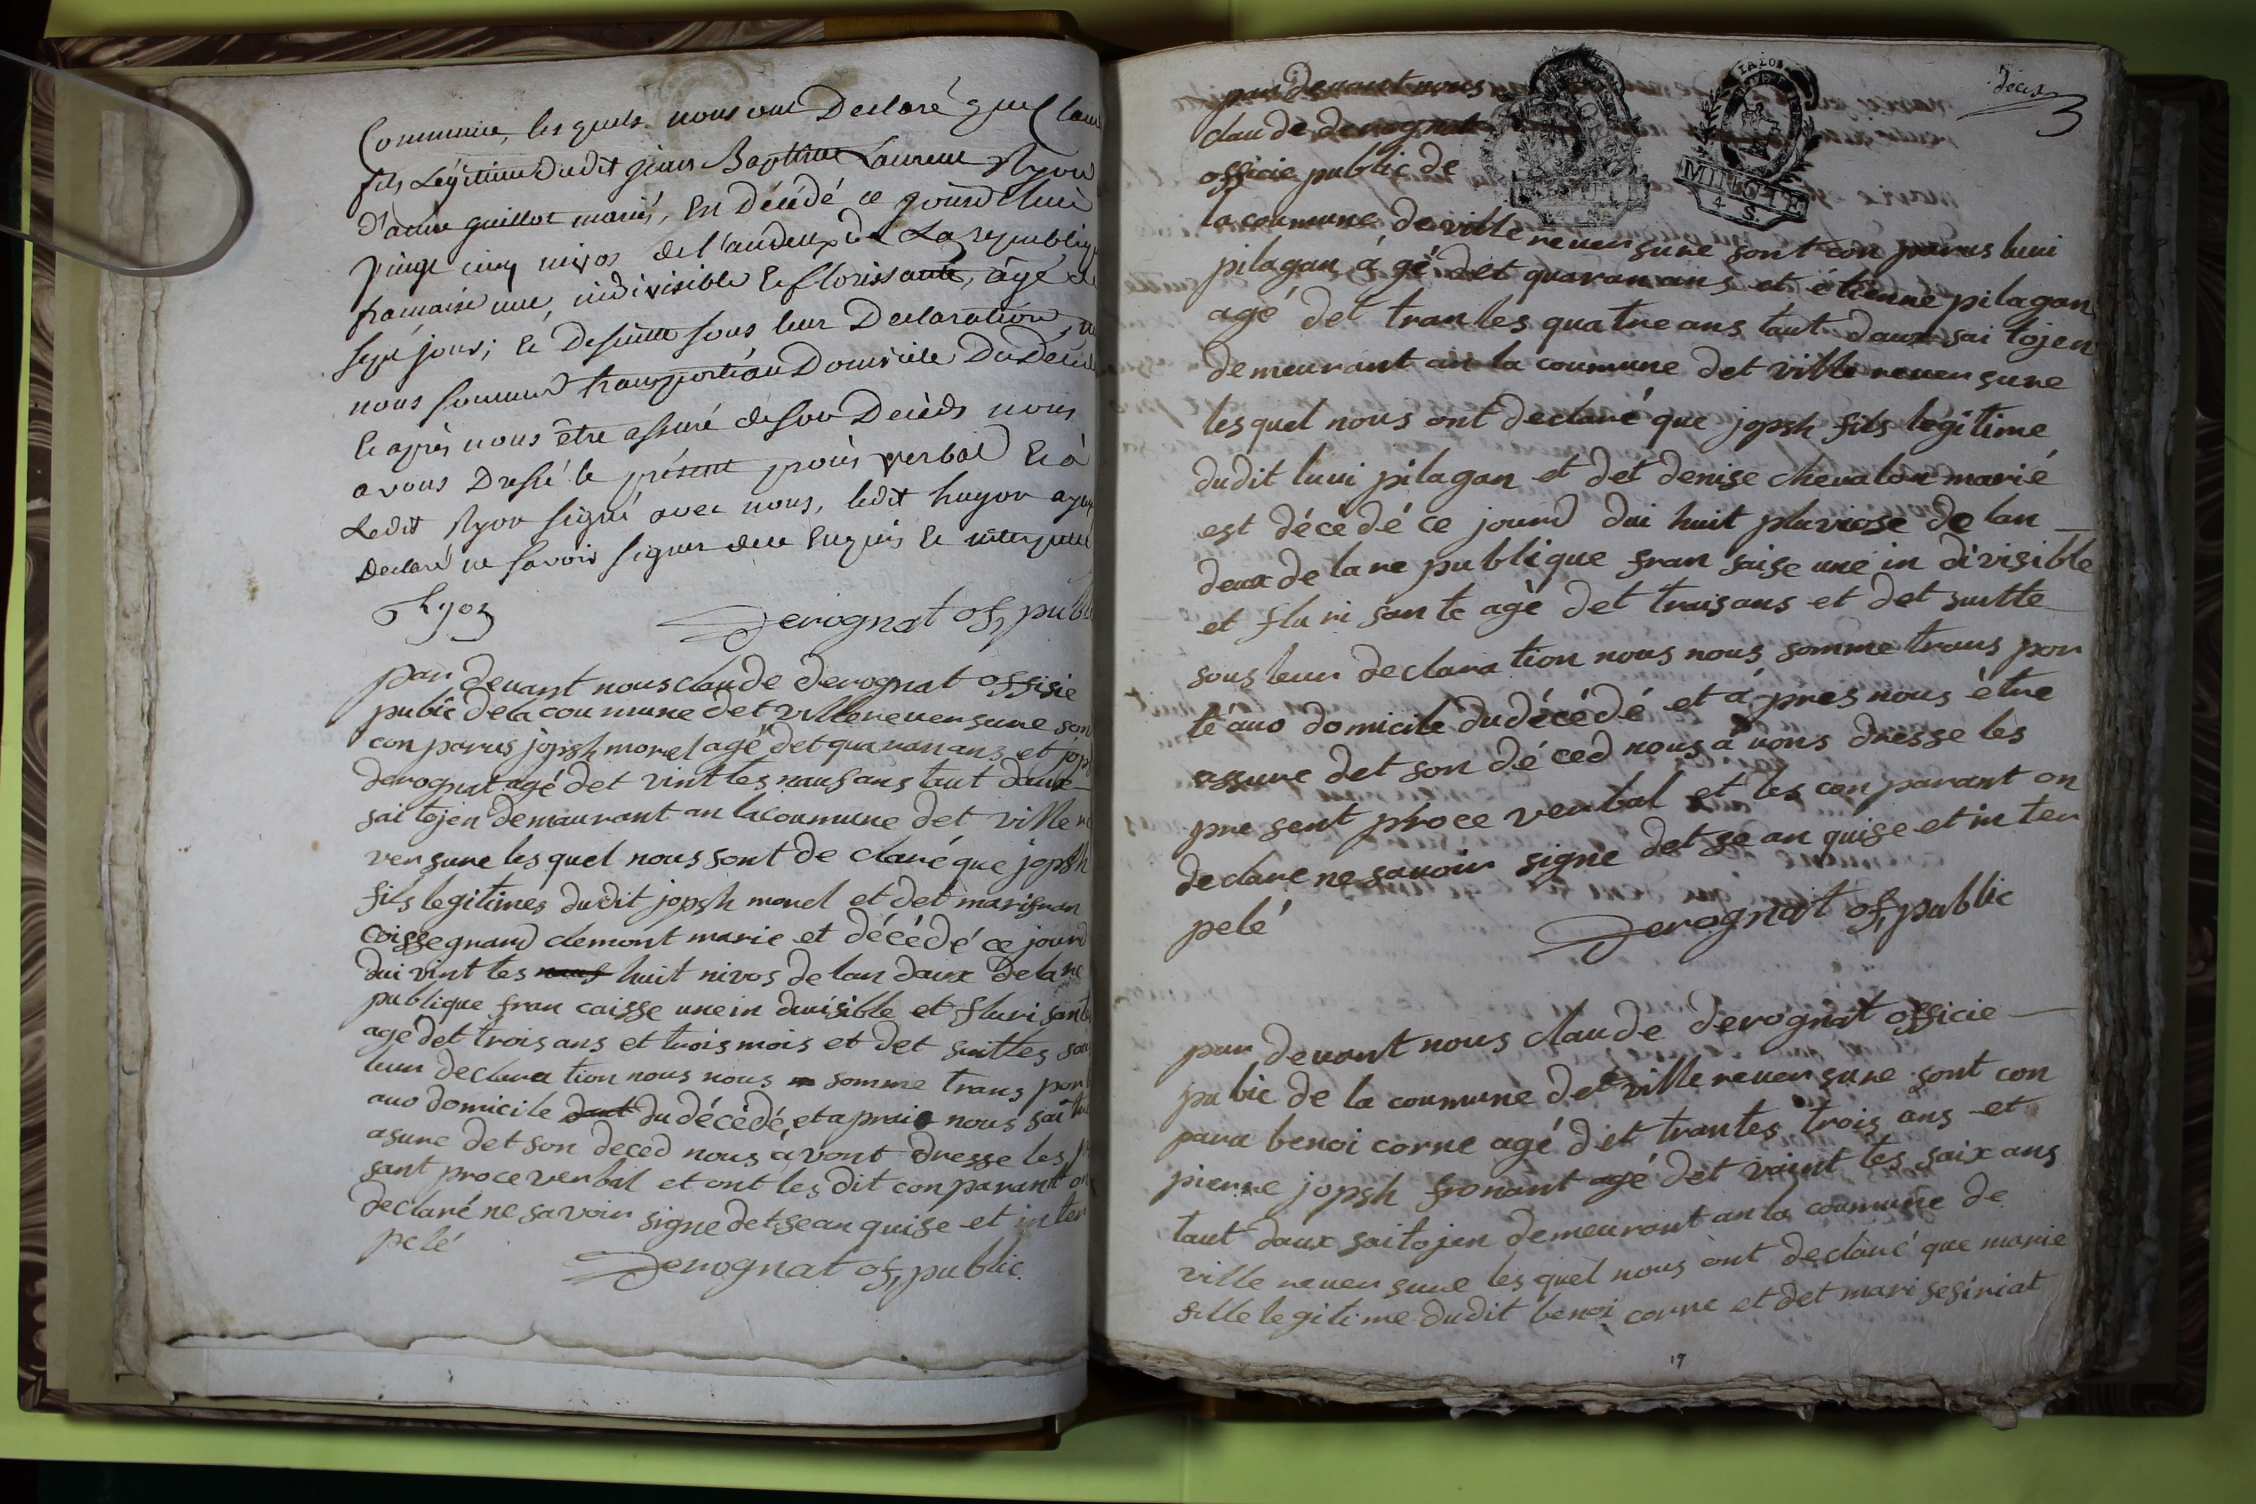 Commune, lesquels nous ont Declaré que Clau
fils Légitime dudit jean Baptiste Laurent Ryon
d'anne guillot mariés, Est Décédé ce jourd'huy
vingt cinq nivos de l'an deux de La republiq
francaise une, indivisible et florissante, âgé de
sept jours; et De suitte sous leur Declaration, n
nous sommes transporté au Domicile Du Décéd
et après nous être assuré de son Décèds nous
avons Dressé le présent procès verbal Et a
Ledit Ryon signé avec nous, ledit huyon ayan
Declaré ne savoir signer de ce Enquis Et interpellé
Ryon
Derognat of, publi
par devant nous claude derognat offisie
pubic dela coumune det villereuersure son
con parus jopsh morel agé det quaran ans et jops
derognat agé det vint tes nauf ans taut daux
saitojen demaurant an lacoumune det ville re
versure les quel nous sont de claré que jopsh
fils legitimes dudit jopsh morel et det marifran
coisse gnard clemont marie et décédé ce jourd
dui vint tes nauf huit nivos de lan daux de la re
publique fran caisse une in duvisible et fluri sante
agé det trois ans et trois mois et det suittes sou
leur declara tion nous nous somme trans por
auo domicile daut du décédé, et aprais nous sai tre
asure det son deced nous a vont dresse les p
sant proce verbal et ont les dit conparant on
declaré ne savoir signe det se an quise et in ter
pelé
Derognat of, public
décès
3
par devant nous
claude derognat
officie public de
la coumune de ville reuersure sont con parus luui
pilagan á gé det quaran ans et étienne pilagan
agé det tran tes quatre ans taut daux sai tojen
demeurant an la coumune det ville reuersure
les quel nous ont declaré que jopsh fils legitime
dudit luui pilagan et det denise chevalon marié
est décédé ce jourd dui huit pluviose de lan
deux de la re publique fran saise une in divisible
et fluri san te agé det trais ans et det suitte
sous leur declara tion nous nous somme trans por
té auo domicile du décédé et á pres nous être
assure det son dé ced nous á vons dresse les
pre sent proce verbal et les con parant on
declare ne sauoir signe det se an quise et in ter
pelé
Derognat of, public
par devant nous claude derognat officie
pubic de la coumune det ville reuersure sont con
para benoi corne agé det trantes trois ans et
pierre jopsh fronant agé det vaint tes saix ans
taut daux saitojen demeurant an la coumune de
ville reuersure les quel nous ont declaré que marie
fille legitime dudit benoi corne et det mari sesiriat
MINUTE
4. S.
19